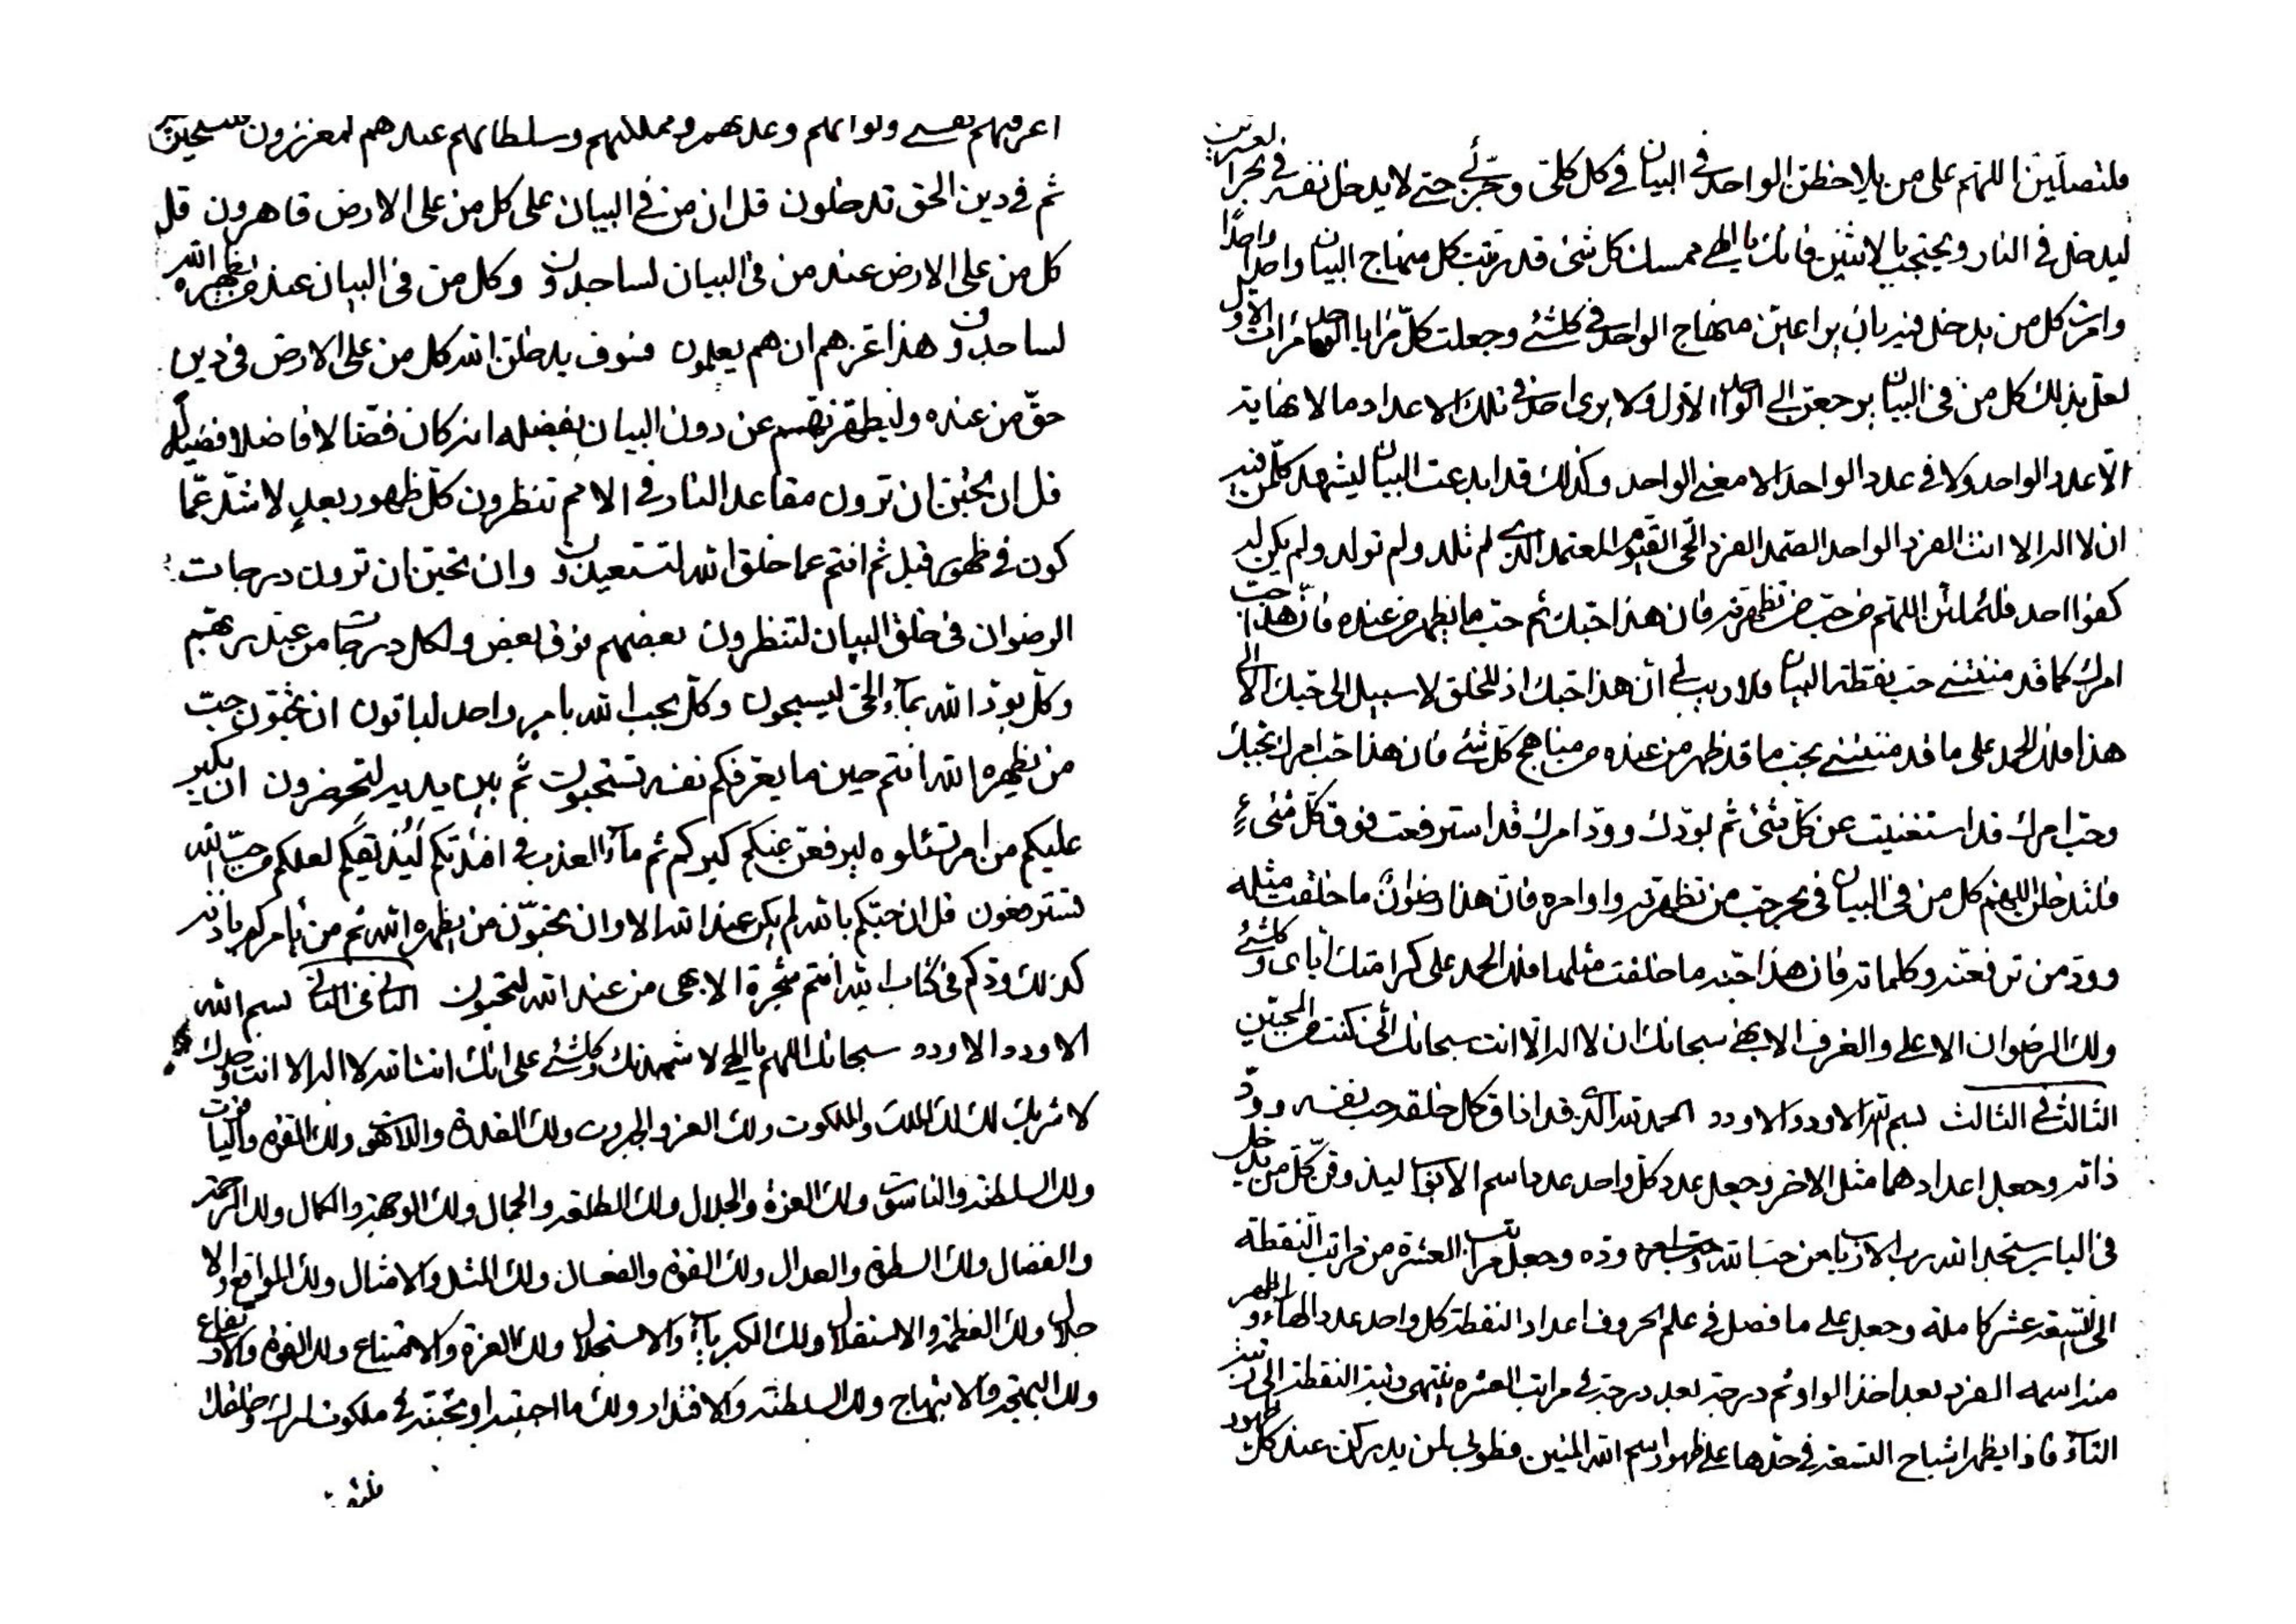 فلتصلين اللهم على من يلاحظن الواحد في البيان في كل كلي وجزئي حتى لا يدخل نفسه في بحر
ليدخل في النار ويحتجب بالاثنين فانك يا الهي ممسك كل شئ قد رتبت كل منهاج البيان واحدا واحدا
وامرت كل من يدخل فيه بان يراعين منهاج الواحد في كلشئ وجعلت كل مرايا الواحد مرات الاول
لعل بذلك كل من في البيان يرجعن الى الواحد الاول ولا يرى احد في تلك الاعداد ما لا نهاية
الا عدد الواحد ولا في عدد الواحد الا معنى الواحد وكذلك قد ابدعت البيان ليشهد كل من فيه
ان لا اله الا انت الفرد الواحد الصمد الفرد الحي القيوم المعتمد الذي لم تلد ولم تولد ولم يكن له
كفوا احد فلتملئن اللهم من حب من تظهرنه فان هذا حبك ثم حب ما يظهر من عنده فان هذا حب
امرك كما قد مننتني حب نقطة البيان فلا ريب لي ان هذا حبك اذ للخلق لا سبيل الى حبك الا الى
هذا فلك الحمد على ما قد مننتني بحب ما قد ظهر من عنده من مناهج كل شئ فان هذا حب امرك بحبك
وحب امرك قد استغنيت عن كل شئ ثم بودك وود امرك قد استرفعت فوق كل شئ
فلتدخلن اللهم كل من في البيان في بحر حب من تظهرنه واوامره فان هذا رضوان ما خلقت مثله
وود من ترفعنه وكلماته فان هذا جنة ما خلقت مثلها فلك الحمد على كرامتك اياي وكلشئ
ولك الرضوان الاعلى والغرف الابهى سبحانك ان لا اله الا انت سبحانك اني كنت من المحبين
الثالث في الثالث بسم الله الاودد الاودد الحمد لله الذي قد اذاق كل خلقه حب نفسه وود
ذاته وجعل اعدادهما مثل الاخر وجعل عدد كل واحد عدد اسم الابهى ليذوقن كل من يدخل
في الباب ستجد الله رب الارباب من حب الله وحب امره ووده وجعل مراتب العشرة من مراتب النقطة
الى التسعة عشر كاملة وجعل على ما فصل في علم الحروف اعداد النقطة كل واحد عدد الهاء واظهر
منه اسمه الفرد بعد اخذ الواو ثم درجة بعد درجة في مراتب العشره ينتهي رتبة النقطة الى رتبة
التاء فاذا يظهر اشباح التسعة في حدها على ظهور اسم الله المنين فطوبى لمن يدركن عند كل ظهور
اعرفنهم نفسي وقواتهم وعدتهم ومملكتهم وسلطانهم عند هم لمعززون
ثم في دين الحق تدخلون قل ان من في البيان على كل من على الارض قاهرون قل
كل من على الارض عند من في البيان لساجدون وكل من في البيان عند من يظهره الله
لساجدون وهذا عزهم ان هم يعلمون فسوف يدخلن الله كل من على الارض في دين
حق من عنده وليطهرنهم عن دون البيان بفضله انه كان فضالا فاضلا فضيلا
قل ان تحبن ان ترون مقاعد النار في الامم تنظرون كل ظهور بعد لاشد عما
كون في ظهور قبل ثم انتم عما خلق الله لتستعيذون وان تحبن ان ترون درجات
الرضوان في خلق البيان لتنظرون بعضهم فوق بعض ولكل درجات من عند ربهم
وكل بود الله بماء الحي ليسبحون وكل بحب الله بامر واحد لياتون ان تحبون حب
من يظهره الله انتم حين ما يعرفكم نفسه تستحبون ثم بين يديه لتحضرون ان يكبر
عليكم من امر تسئلوه ليرفعن عنكم كبركم ثم ماء العذب في افئدتكم ليذيقكم لعلكم من حب الله
تسترضعون قل ان حبكم بالله لم يكن عند الله الا وان تحبون من يظهره الله ثم من يامركم باذنه
كذلك ودكم في كتاب الله انتم شجرة الابهى من عند الله لتحبون الثاني في الثاني بسم الله
الاودد الاودد سبحانك اللهم يا الهي لاشهدنك وكلشئ على انك انت الله لا اله الا انت وحدك
لا شريك لك لك الملك والملكوت ولك العز والجبروت ولك القدرة واللاهوت ولك القوة والياقوت
ولك السلطنة والناسوت ولك العزة والجلال ولك الطلعة والجمال ولك الوجهة والكمال ولك الرحمة
والفضال ولك السطوة والعدال ولك القوة والفعال ولك المثل والامثال ولك المواقع والا
جلال ولك العظمة والاستقلال ولك الكبرياء والاستجلال ولك العزة والامتناع ولك القوة والارتفاع
ولك البهجة والابتهاج ولك السلطنة والاقتدار ولك ما احببته او تحبنه في ملكوت امرك وخلقك